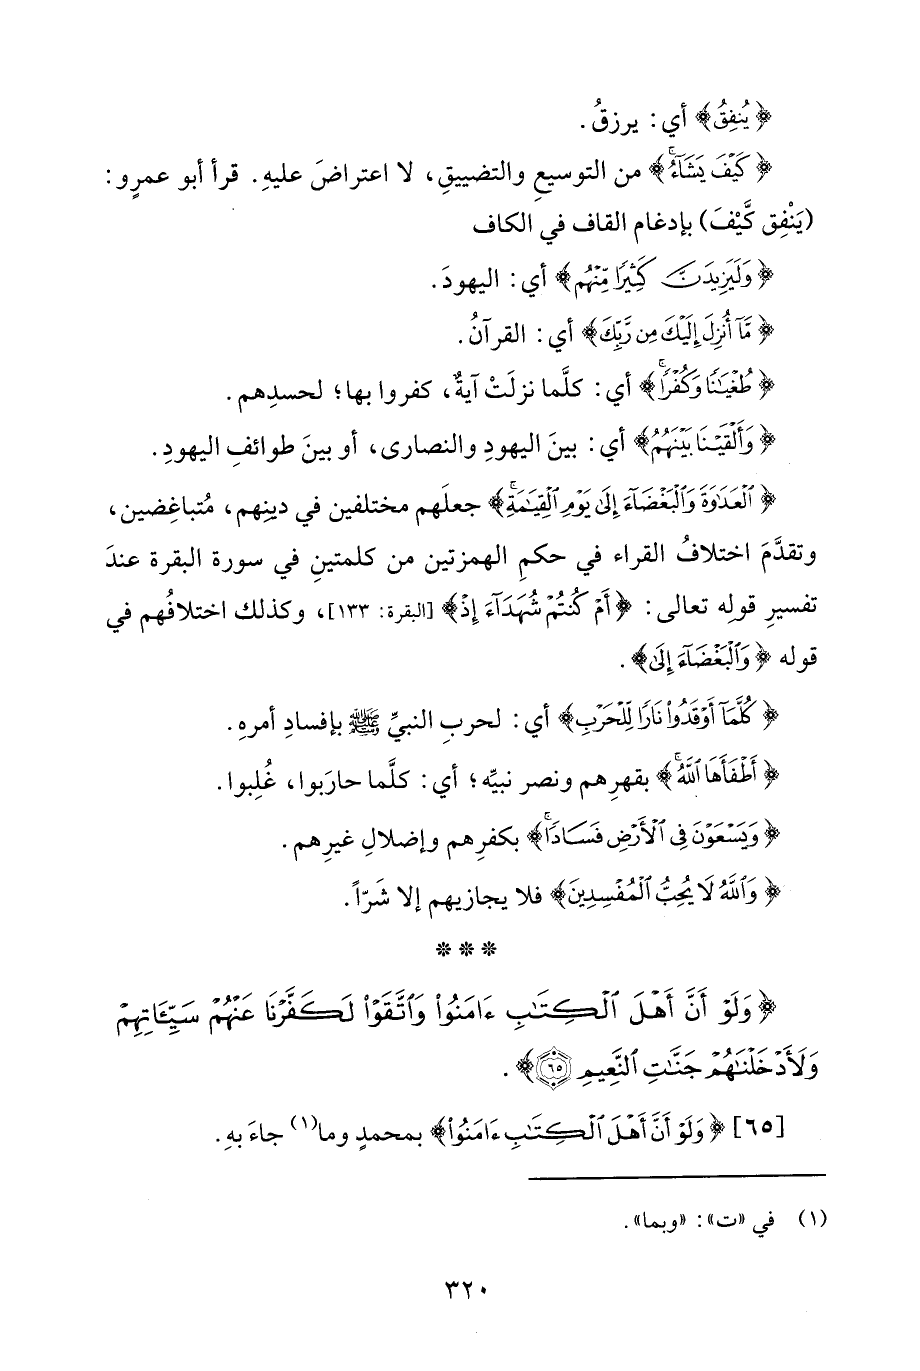 ﴿يُنفِقُ﴾ أي: يرزقُ.
﴿كَيْفَ يَشَآءُ﴾ من التوسيعِ والتضييقِ، لا اعتراضَ عليهِ. قرأ أبو عمرٍو:
(يَنْفِق كَّيْفَ) بإدغام القاف في الكاف
﴿وَلَيَزِيدَنَّ كَثِيرًا مِّنْهُم﴾ أي: اليهودَ.
﴿مَّآ أُنزِلَ إِلَيْكَ مِن رَّبِّكَ﴾ أي: القرآنُ.
﴿طُغْيَٰنًا وَكُفْرًا﴾ أي: كلَّما نزلَتْ آيةٌ، كفروا بها؛ لحسدِهم.
﴿وَأَلْقَيْنَا بَيْنَهُمُ﴾ أي: بينَ اليهودِ والنصارى، أو بينَ طوائفِ اليهودِ.
﴿ٱلْعَدَٰوَةَ وَٱلْبَغْضَآءَ إِلَىٰ يَوْمِ ٱلْقِيَٰمَةِ﴾ جعلَهم مختلفين في دينِهم، مُتباغِضين،
وتقدَّمَ اختلافُ القراء في حكمِ الهمزتين من كلمتينِ في سورة البقرة عندَ
تفسيرِ قولِه تعالى: ﴿أَمْ كُنتُمْ شُهَدَآءَ إِذْ﴾ [البقرة: ١٣٣]، وكذلك اختلافُهم في
قوله ﴿وَٱلْبَغْضَآءَ إِلَىٰ﴾.
﴿كُلَّمَآ أَوْقَدُوا۟ نَارًا لِّلْحَرْبِ﴾ أي: لحربِ النبيِّ ﷺ بإفسادِ أمرِهِ.
﴿أَطْفَأَهَا ٱللَّهُ﴾ بقهرِهم ونصر نبيِّه؛ أي: كلَّما حاربوا، غُلِبوا.
﴿وَيَسْعَوْنَ فِى ٱلْأَرْضِ فَسَادًا﴾ بكفرِهم وإضلالِ غيرِهم.
﴿وَٱللَّهُ لَا يُحِبُّ ٱلْمُفْسِدِينَ﴾ فلا يجازيهم إلا شَرّاً.
* * *
﴿وَلَوْ أَنَّ أَهْلَ ٱلْكِتَٰبِ ءَامَنُوا۟ وَٱتَّقَوْا۟ لَكَفَّرْنَا عَنْهُمْ سَيِّـَٔاتِهِمْ
وَلَأَدْخَلْنَٰهُمْ جَنَّٰتِ ٱلنَّعِيمِ ٦٥﴾.
[٦٥] ﴿وَلَوْ أَنَّ أَهْلَ ٱلْكِتَٰبِ ءَامَنُوا۟﴾ بمحمدٍ وما(١) جاءَ بهِ.
(١) في «ت»: «وبما».
٣٢٠